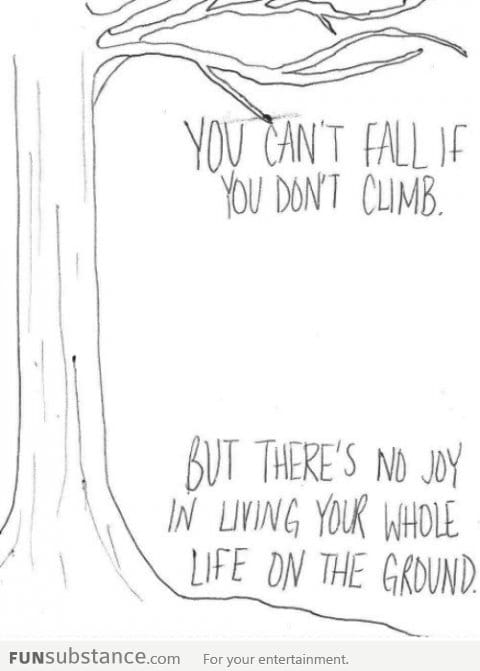 YOU CAN'T FALL IF
YOU DON'T CLIMB.
BUT THERE'S NO JOY
IN LIVING YOUR WHOLE
LIFE ON THE GROUND.
FUNsubstance.com For your entertainment.